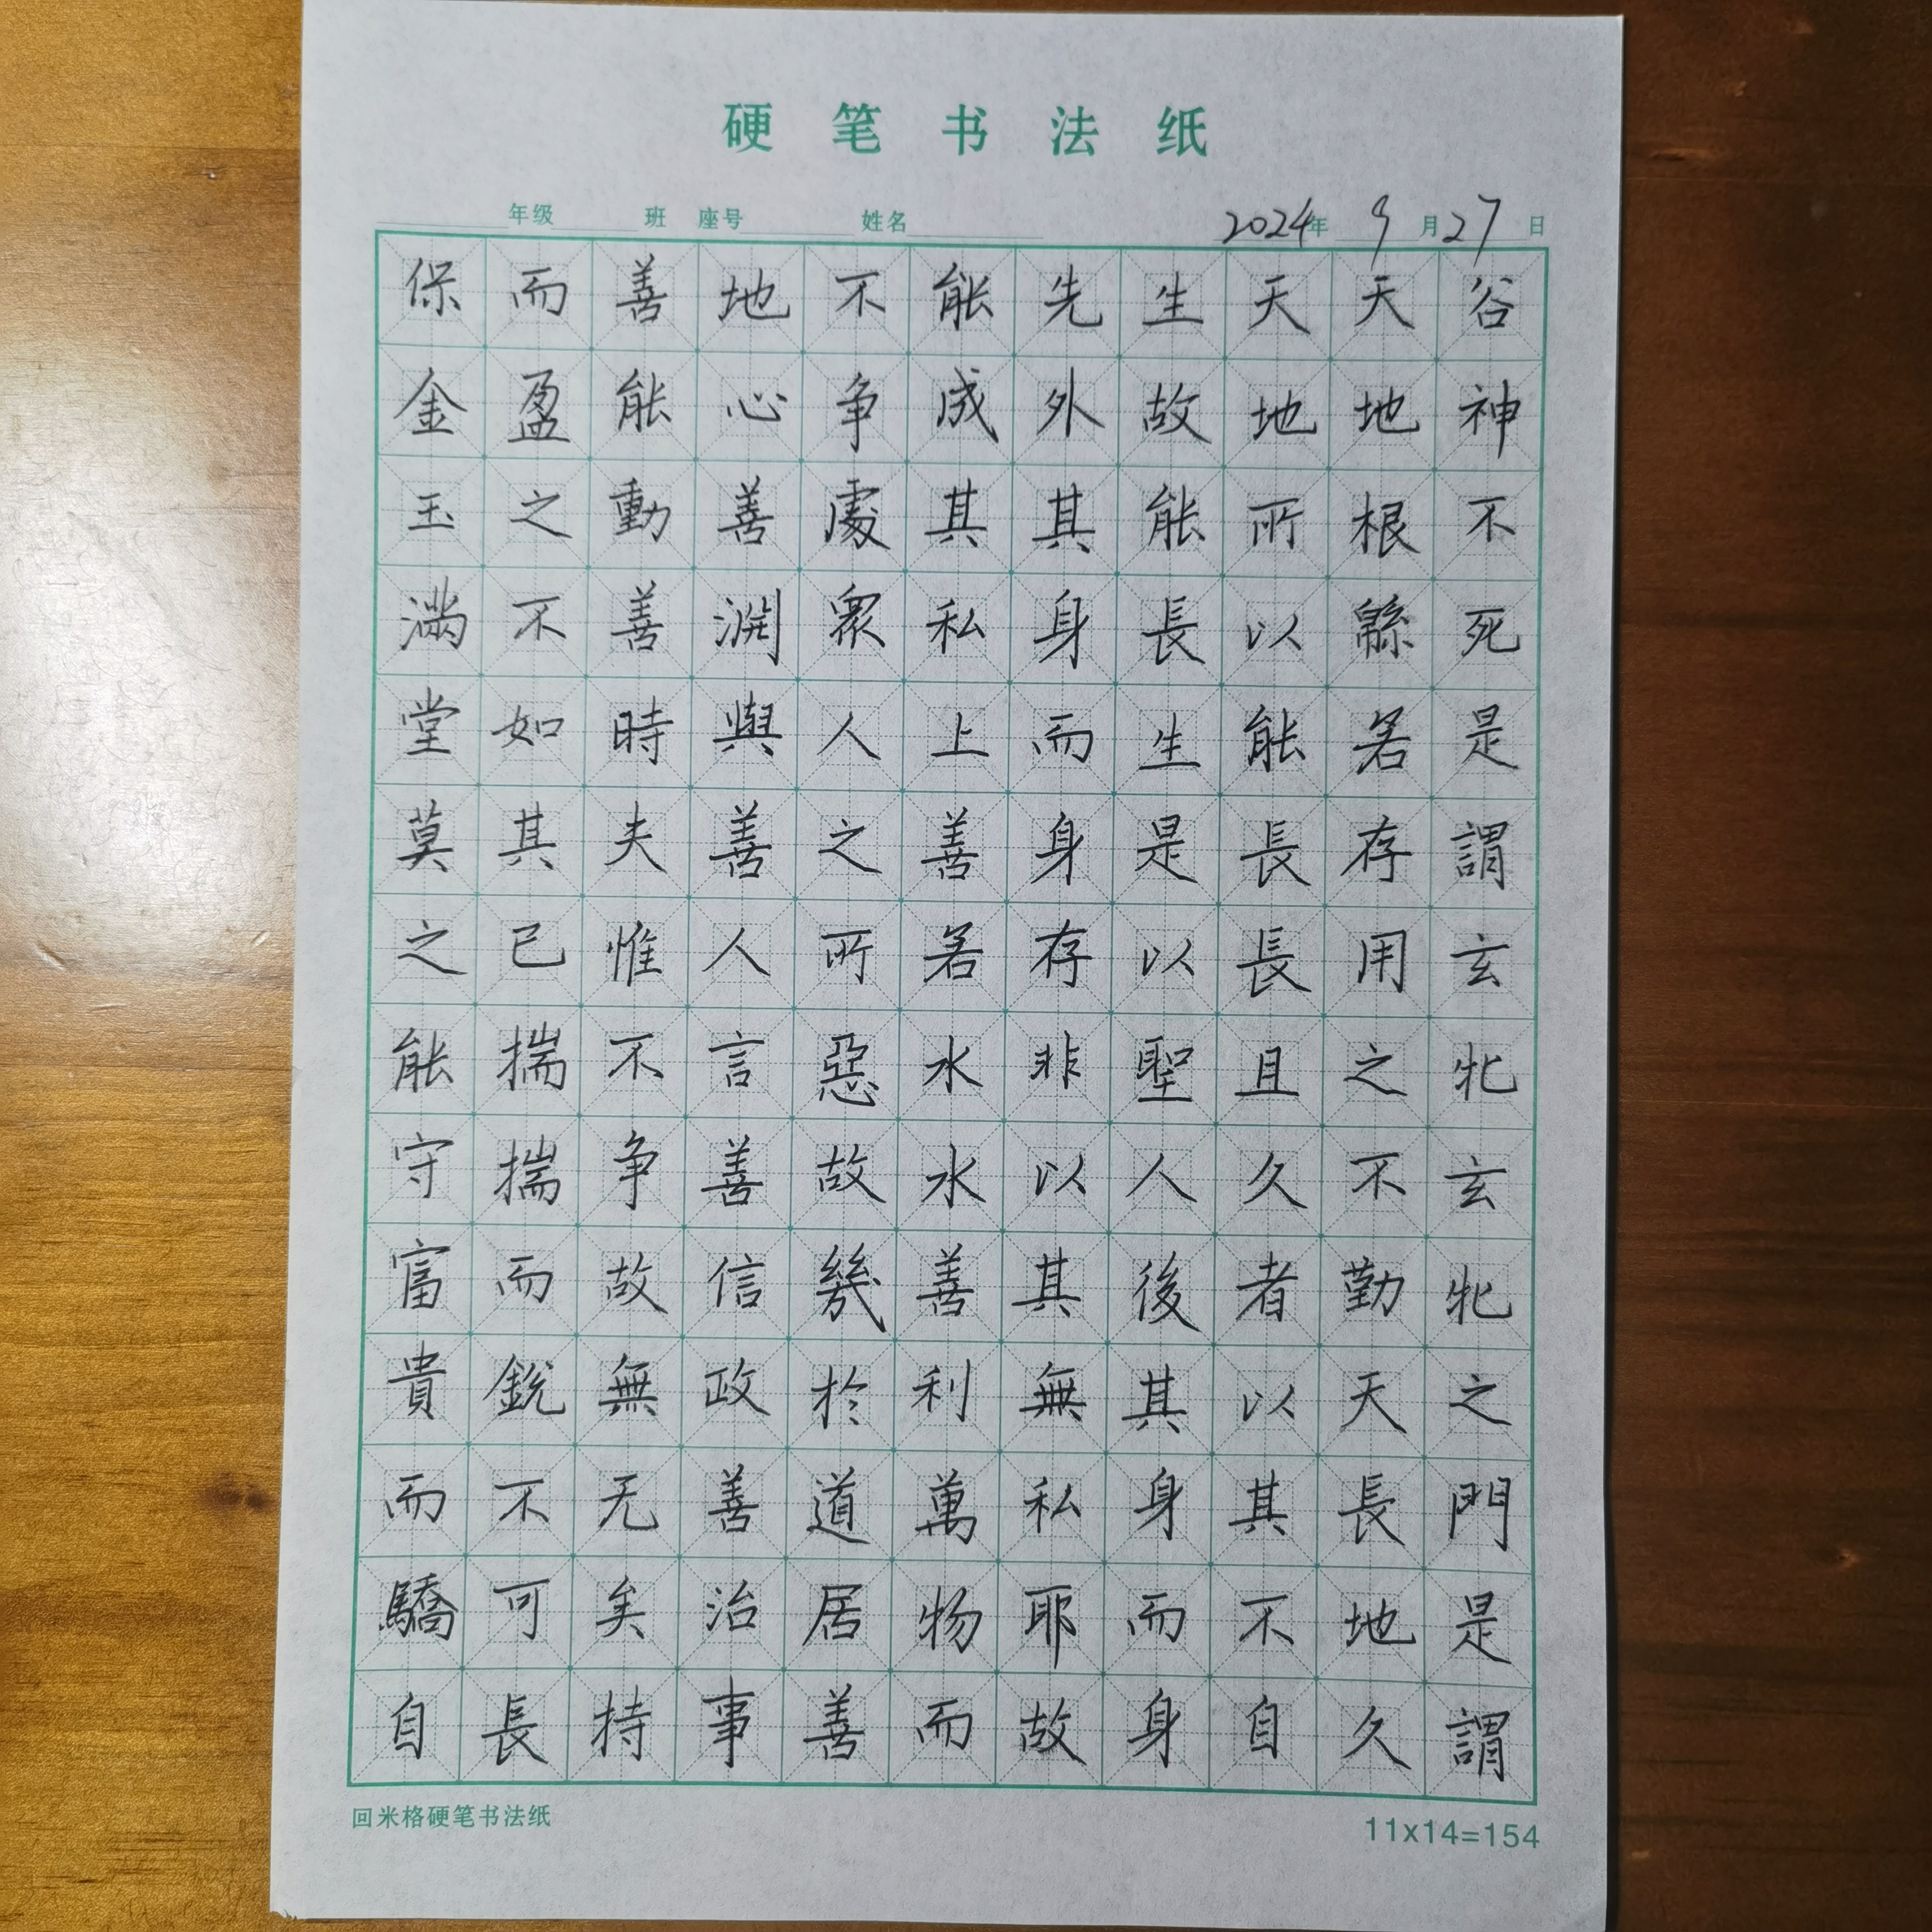 硬笔书法纸
年级 班 座号 姓名 2024年9月27日
谷神不死是謂玄牝玄牝之門是謂
天地根緜若存用之不勤天長地久
天地所以能長長且久者以其不自
生故能長生是以聖人後其身而身
先外其身而身存非以其無私耶故
能成其私上善若水水善利萬物而
不争處衆人之所惡故幾於道居善
地心善淵與善人言善信政善治事
善能動善時夫惟不争故無无矣持
而盈之不如其已揣揣而銳不可長
保金玉满堂莫之能守富貴而驕自
回米格硬笔书法纸
11x14=154